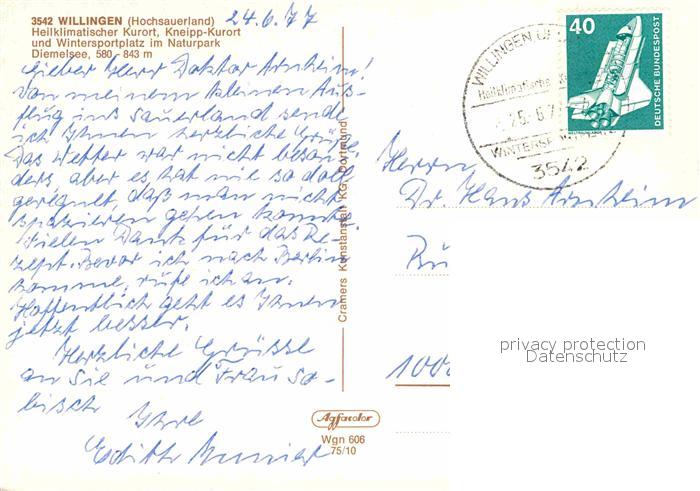 3542 WILLINGEN (Hochsauerland)
Heilklimatischer Kurort, Kneipp-Kurort
und Wintersportplatz im Naturpark
Diemelsee, 580 - 843 m
24.6.77
Lieber Herr Doktor Arnheim!
Von meinem kleinen Aus-
flug ins Sauerland sende
ich Ihnen herzliche Grüße.
Das Wetter war nicht beson-
ders, aber es hat nie so doll
geregnet, daß man nicht
spazieren gehen konnte.
Vielen Dank für das Re-
zept. Bevor ich nach Berlin
komme, rufe ich an.
Hoffentlich geht es Ihnen
jetzt besser.
Herzliche Grüsse
an Sie und Frau So-
bisch Ihre
Edith
Cramers Kunstanstalt KG, Dortmund
Agfacolor
Wgn 606
75/10
WILLINGEN
Heilklimatische
25.6.7
WINTERSP
3542
40
DEUTSCHE BUNDESPOST
Herrn
Dr. Hans Arnheim
1000
privacy protection
Datenschutz